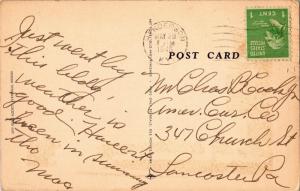 Just went by
this bldg,
weather is
good. Haven't
been in swimming
tho
Mac
MAY 29
POST CARD
1 CENT 1
UNITED STATES POSTAGE
Mr Chas P Cooke Jr
Amer. Car. Co
347 Church St
Lancaster Pa